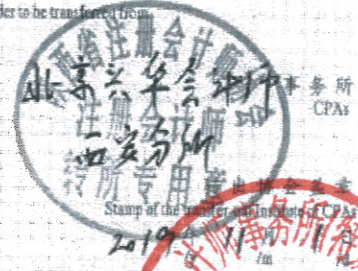 der to be transferred from
西省注册会计师
北京兴华会计师 事务所
CPAs
注册会计师
西安分所
转所专用章
转出协会盖章
Stamp of the transfer-out Institute of CPAs
2019年 11月 1日
/m
计师事务所